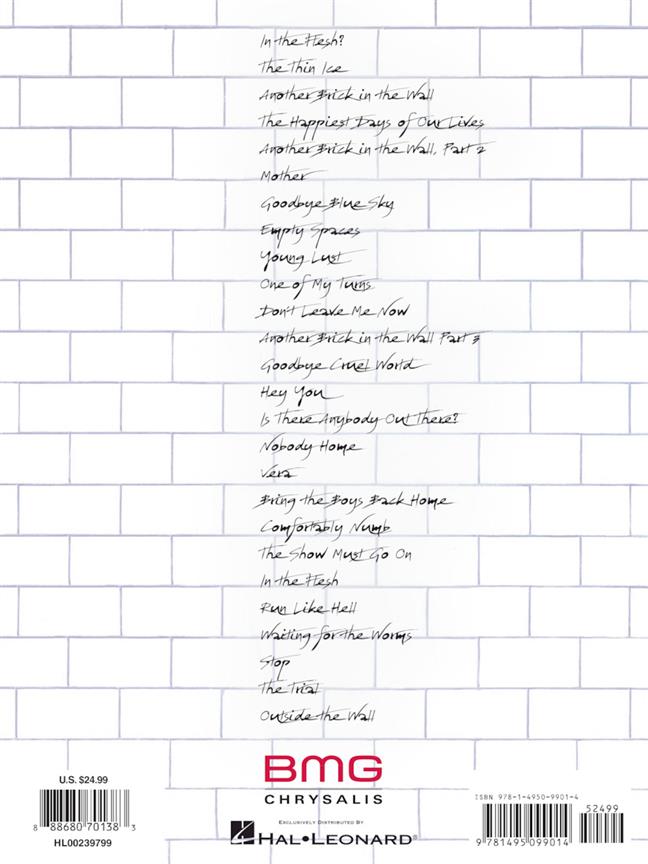 In the Flesh?
The Thin Ice
Another Brick in the Wall
The Happiest Days of Our Lives
Another Brick in the Wall, Part 2
Mother
Goodbye Blue Sky
Empty Spaces
Young Lust
One of My Turns
Don't Leave Me Now
Another Brick in the Wall Part 3
Goodbye Cruel World
Hey You
Is There Anybody Out There?
Nobody Home
Vera
Bring the Boys Back Home
Comfortably Numb
The Show Must Go On
In the Flesh
Run Like Hell
Waiting for the Worms
Stop
The Trial
Outside the Wall
BMG
CHRYSALIS
EXCLUSIVELY DISTRIBUTED BY
HAL•LEONARD®
U.S. $24.99
8 88680 70138 3
HL00239799
ISBN 978-1-4950-9901-4
52499
9 781495 099014